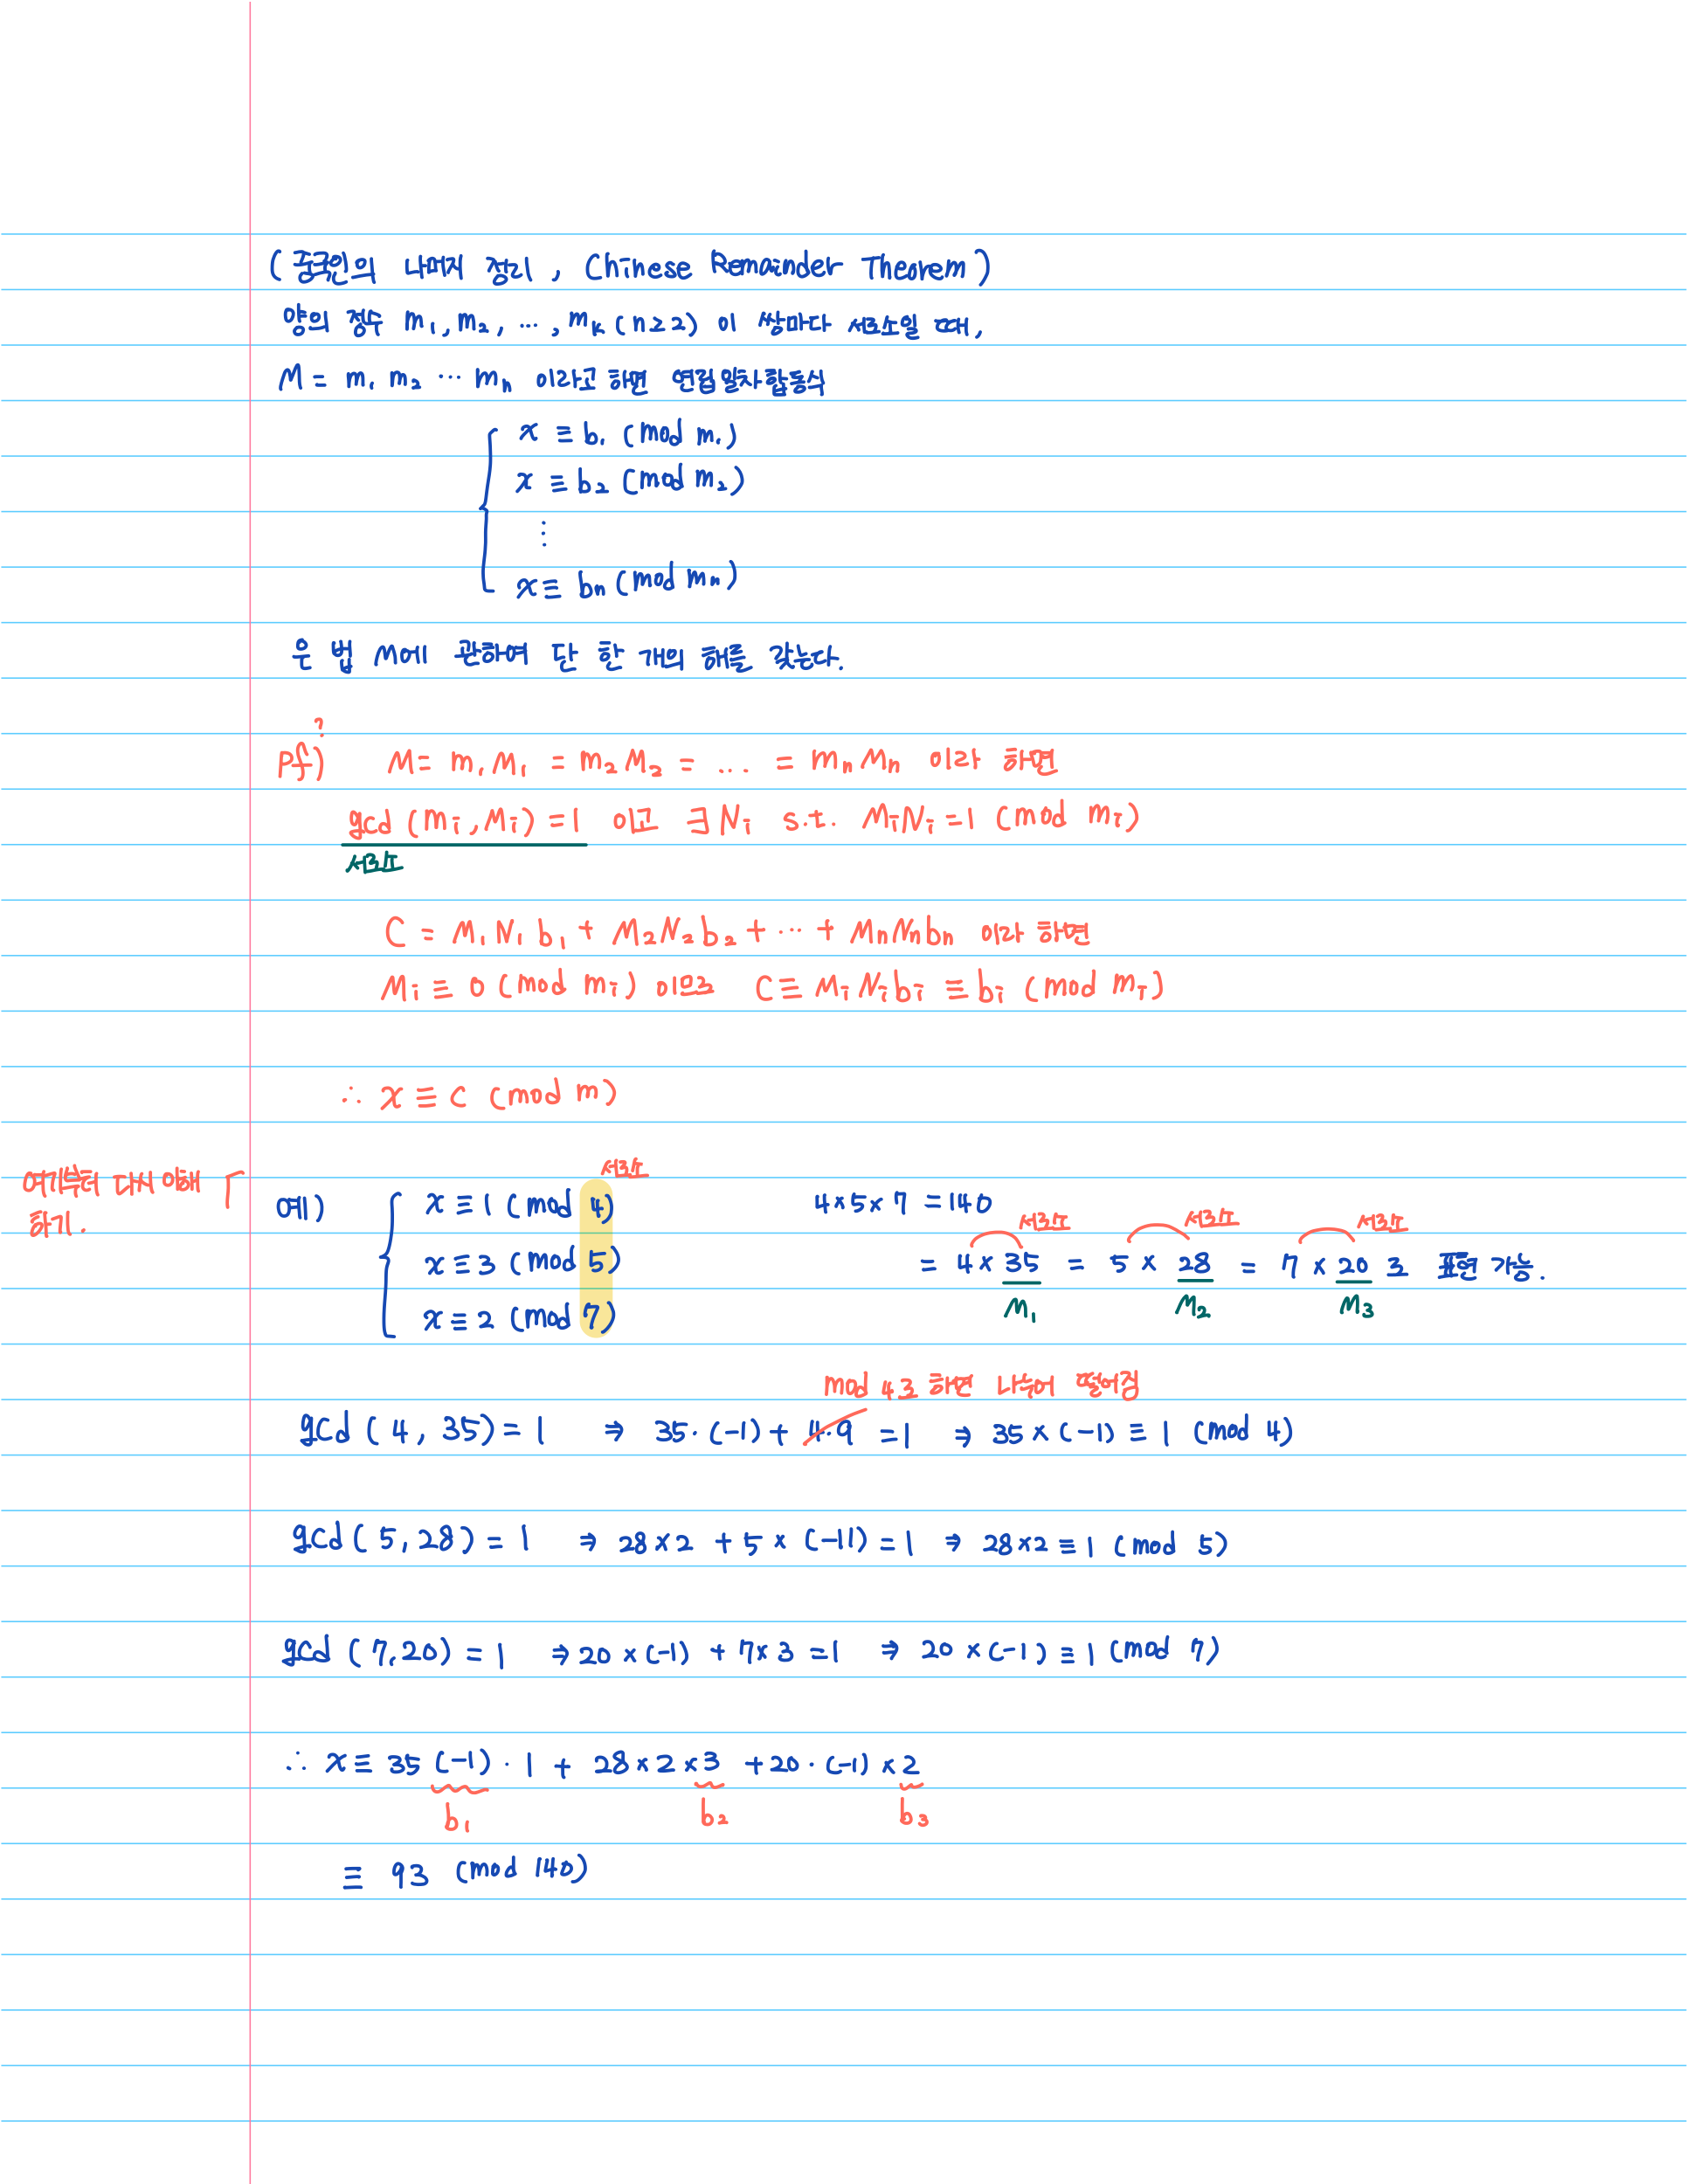 (중국인의 나머지 정리, Chinese Remainder Theorem)
양의 정수 m₁, m₂, ⋯, mₖ (n≥2) 이 쌍마다 서로소일 때,
M = m₁ m₂ ⋯ mₙ 이라고 하면 연립일차합동식
x ≡ b₁ (mod m₁)
x ≡ b₂ (mod m₂)
⋮
x ≡ bₙ (mod mₙ)
은 법 M에 관하여 단 한 개의 해를 갖는다.
?
pf) M = m₁M₁ = m₂M₂ = ... = mₙMₙ 이라 하면
gcd (mᵢ, Mᵢ) = 1 이고 ∃Nᵢ s.t. MᵢNᵢ = 1 (mod mᵢ)
서로소
C = M₁N₁b₁ + M₂N₂b₂ + ⋯ + MₙNₙbₙ 이라 하면
Mᵢ ≡ 0 (mod mᵢ) 이므로 C ≡ MᵢNᵢbᵢ ≡ bᵢ (mod mᵢ)
∴ x ≡ c (mod m)
여기부터 다시 이해
하기.
서로소
예) x ≡ 1 (mod 4)
x ≡ 3 (mod 5)
x ≡ 2 (mod 7)
4×5×7 = 140
서로소 서로소 서로소
= 4×35 = 5×28 = 7×20 로 표현 가능.
M₁ M₂ M₃
mod 4로 하면 나누어 떨어짐
gcd (4, 35) = 1 ⇒ 35·(-1) + 4·9 = 1 ⇒ 35×(-1) ≡ 1 (mod 4)
gcd (5, 28) = 1 ⇒ 28×2 + 5×(-11) = 1 ⇒ 28×2 ≡ 1 (mod 5)
gcd (7, 20) = 1 ⇒ 20×(-1) + 7×3 = 1 ⇒ 20×(-1) ≡ 1 (mod 7)
∴ x ≡ 35(-1)·1 + 28×2×3 + 20·(-1)×2
b₁ b₂ b₃
≡ 93 (mod 140)